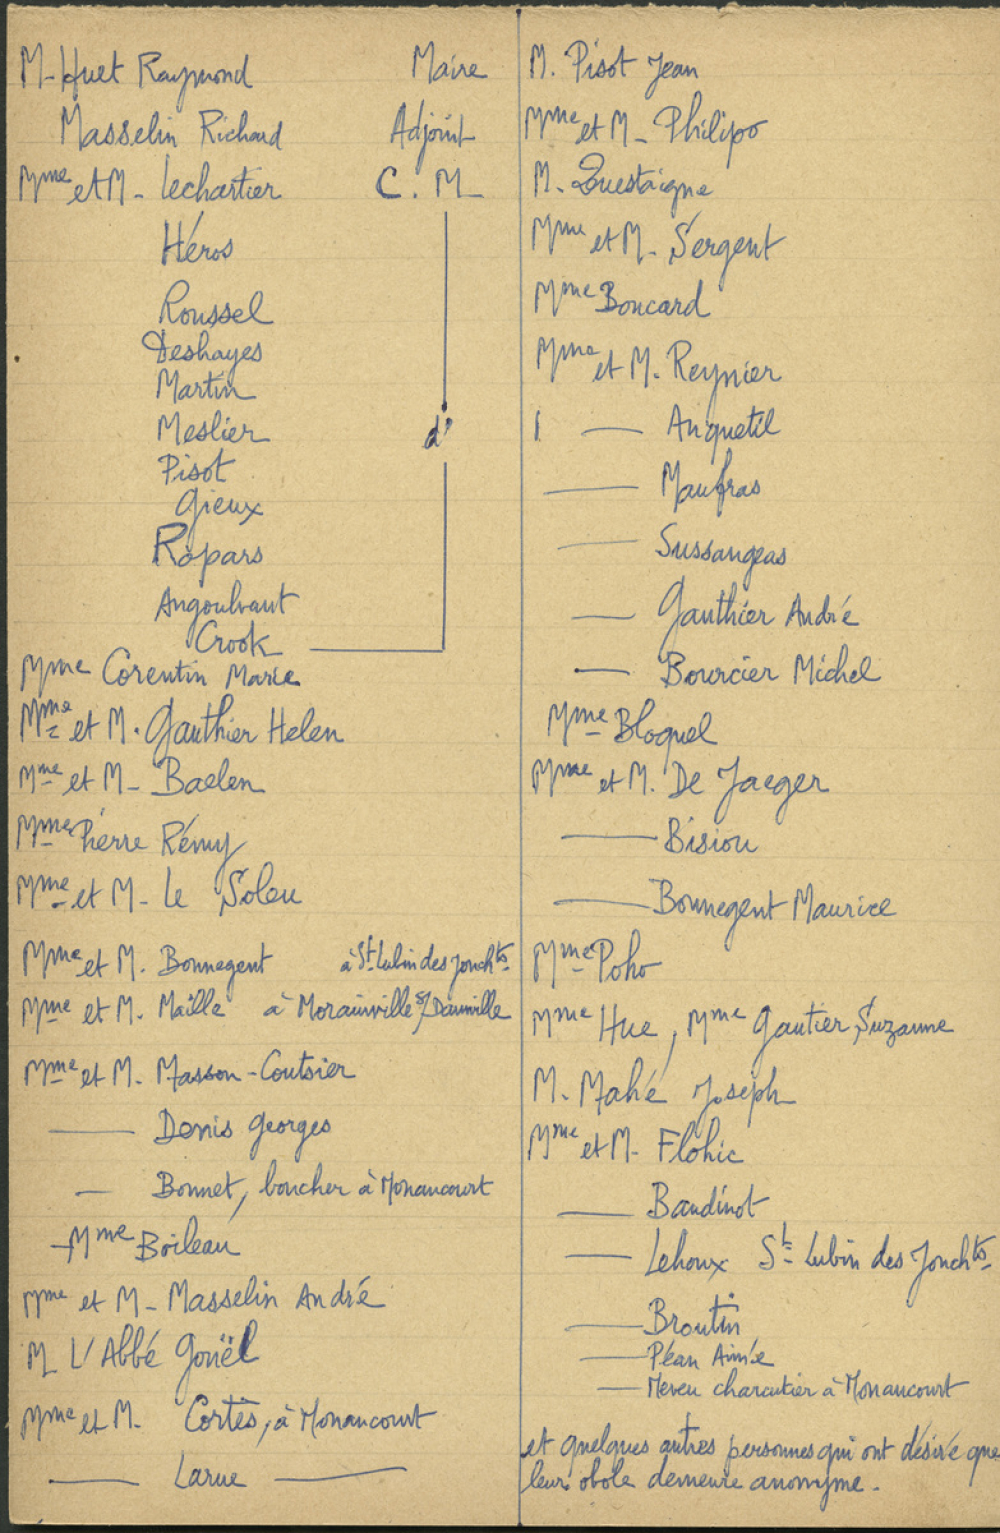 M. Huet Raymond Maire
Masselin Richard Adjoint
Mme et M. Lechartier C. M.
Héros
Roussel
Deshayes
Martin
Meslier d°
Pisot
Gieux
Ropars
Angoulvant
Crook
Mme Corentin Marie
Mme et M. Gauthier Helen
Mme et M. Baelen
Mme Pierre Rémy
Mme et M. Le Soleu
Mme et M. Bonnegent à St Lubin des Jonchts
Mme et M. Maille à Morainville s/ Daunville
Mme et M. Masson-Coutsier
— Denis Georges
— Bonnet, boucher à Monancourt
— Mme Boileau
Mme et M. Masselin André
M. L'Abbé Gouël
Mme et M. Cortès, à Monancourt
— Larue —
M. Pisot Jean
Mme et M. Philipo
M. Questaigne
Mme et M. Sergent
Mme Boucard
Mme et M. Reynier
— Anquetil
— Maufras
— Sussangeas
— Gauthier André
— Bourcier Michel
Mme Bloquel
Mme et M. De Jaeger
— Bisiou
— Bonnegent Maurice
Mme Poho
Mme Hue, Mme Gautier Suzanne
M. Mahé Joseph
Mme et M. Flohic
— Baudinot
— Lehoux St Lubin des Jonchts
— Broutin
— Péan Aimée
— Meveu charcutier à Monancourt
et quelques autres personnes qui ont désiré que
leur obole demeure anonyme.